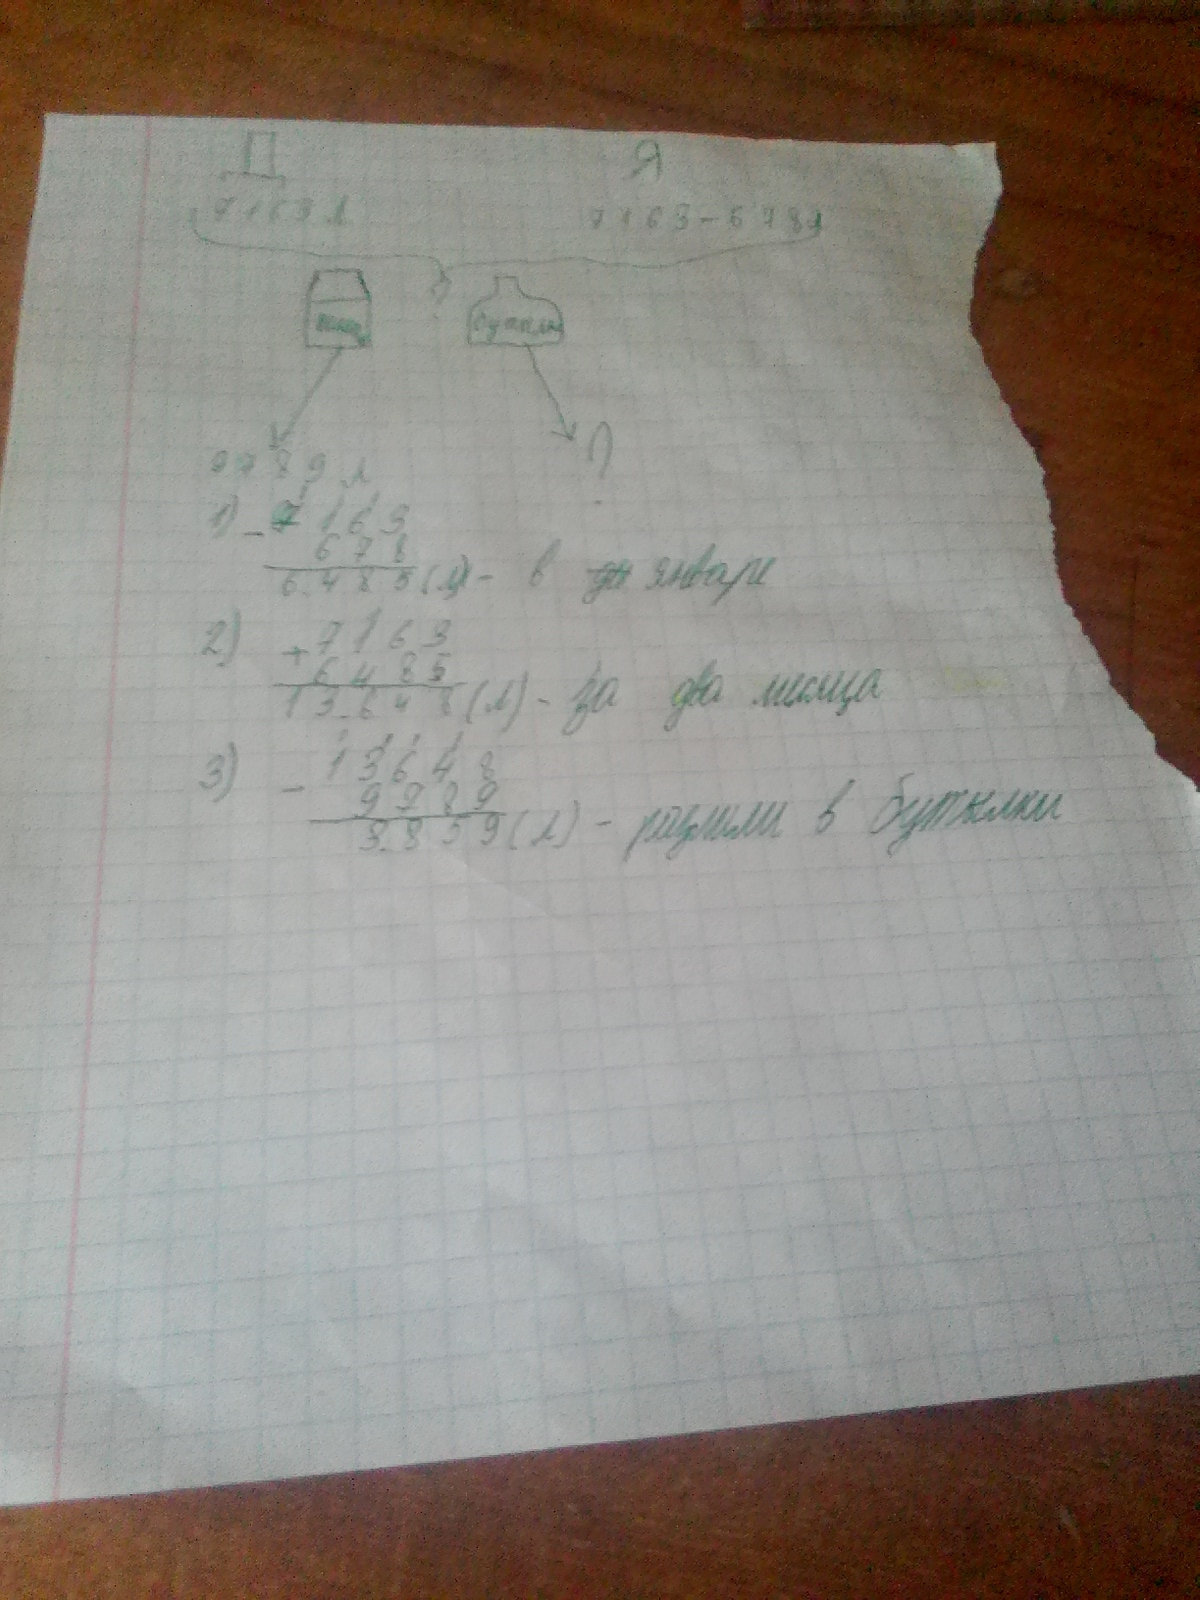 Д Я
7163 л 7163-678л
бутылки
9789 л ?
1) - 7163
678
6.485 (л) - в январе
2) + 7163
6485
13.648 (л) - за два месяца
3) - 13648
9789
3.859 (л) - разлили в бутылки